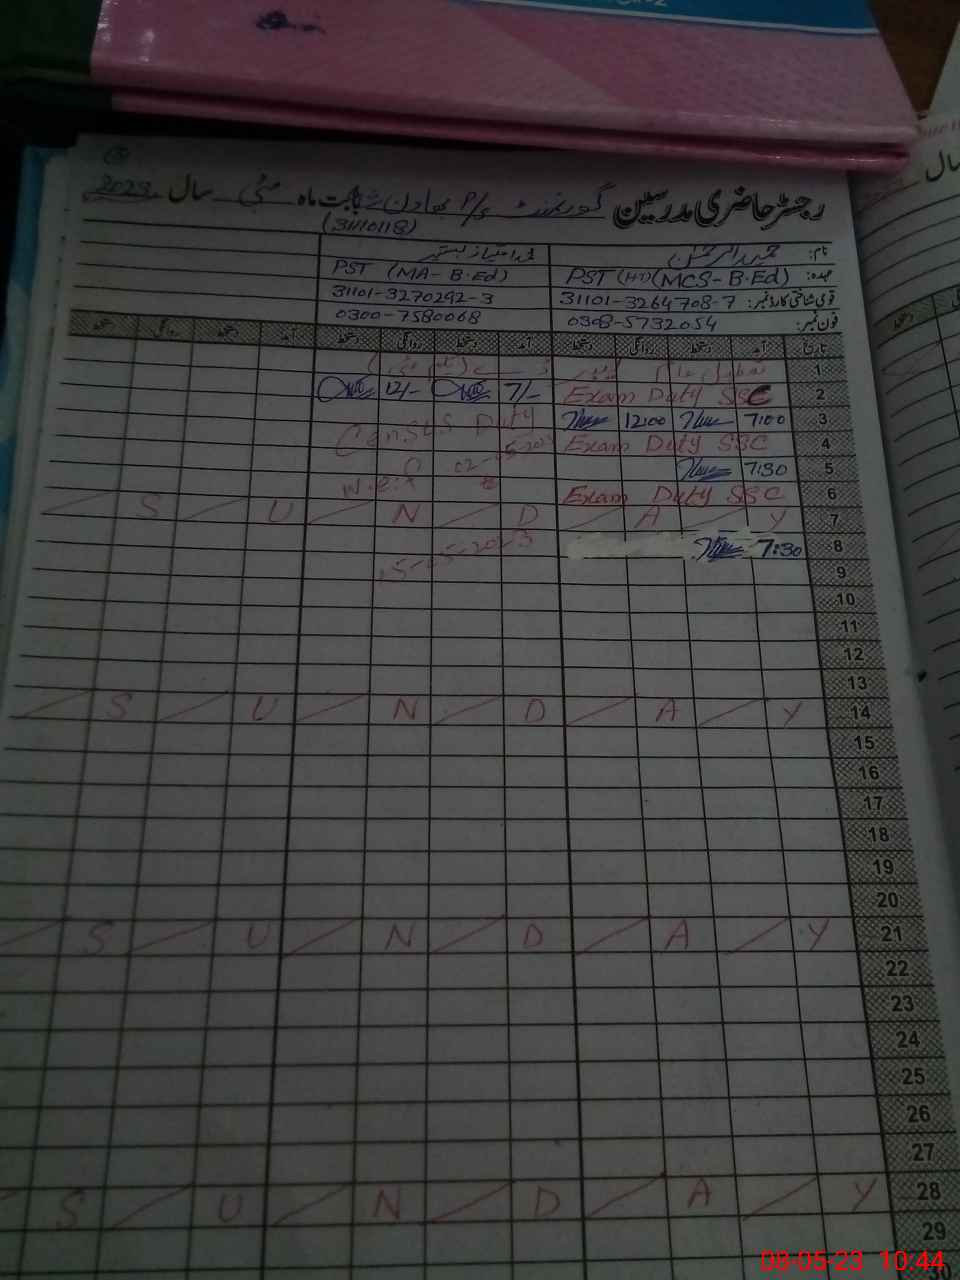 رجسٹر حاضری مدرسین گورنمنٹ P/s بابت ماہ مئی سال 2023
(31110118)
نام:
عہدہ: PST (HT) (MCS-B.Ed) PST (MA-B.Ed)
قومی شناختی کارڈ نمبر: 31101-3264708-7 31101-3270292-3
فون نمبر: 0308-5732054 0300-7580068
تاریخ آمد دستخط روانگی دستخط آمد دستخط روانگی دستخط آمد دستخط روانگی دستخط
1
2 Exam Duty SSC 7/- 12/-
3 7:00 12:00 Census Duty
4 Exam Duty SSC
5 7:30
6 Exam Duty SSC
7 S U N D A Y
8 7:30
9
10
11
12
13
14 S U N D A Y
15
16
17
18
19
20
21 S U N D A Y
22
23
24
25
26
27
28 S U N D A Y
29
30
08-05-23 10:44